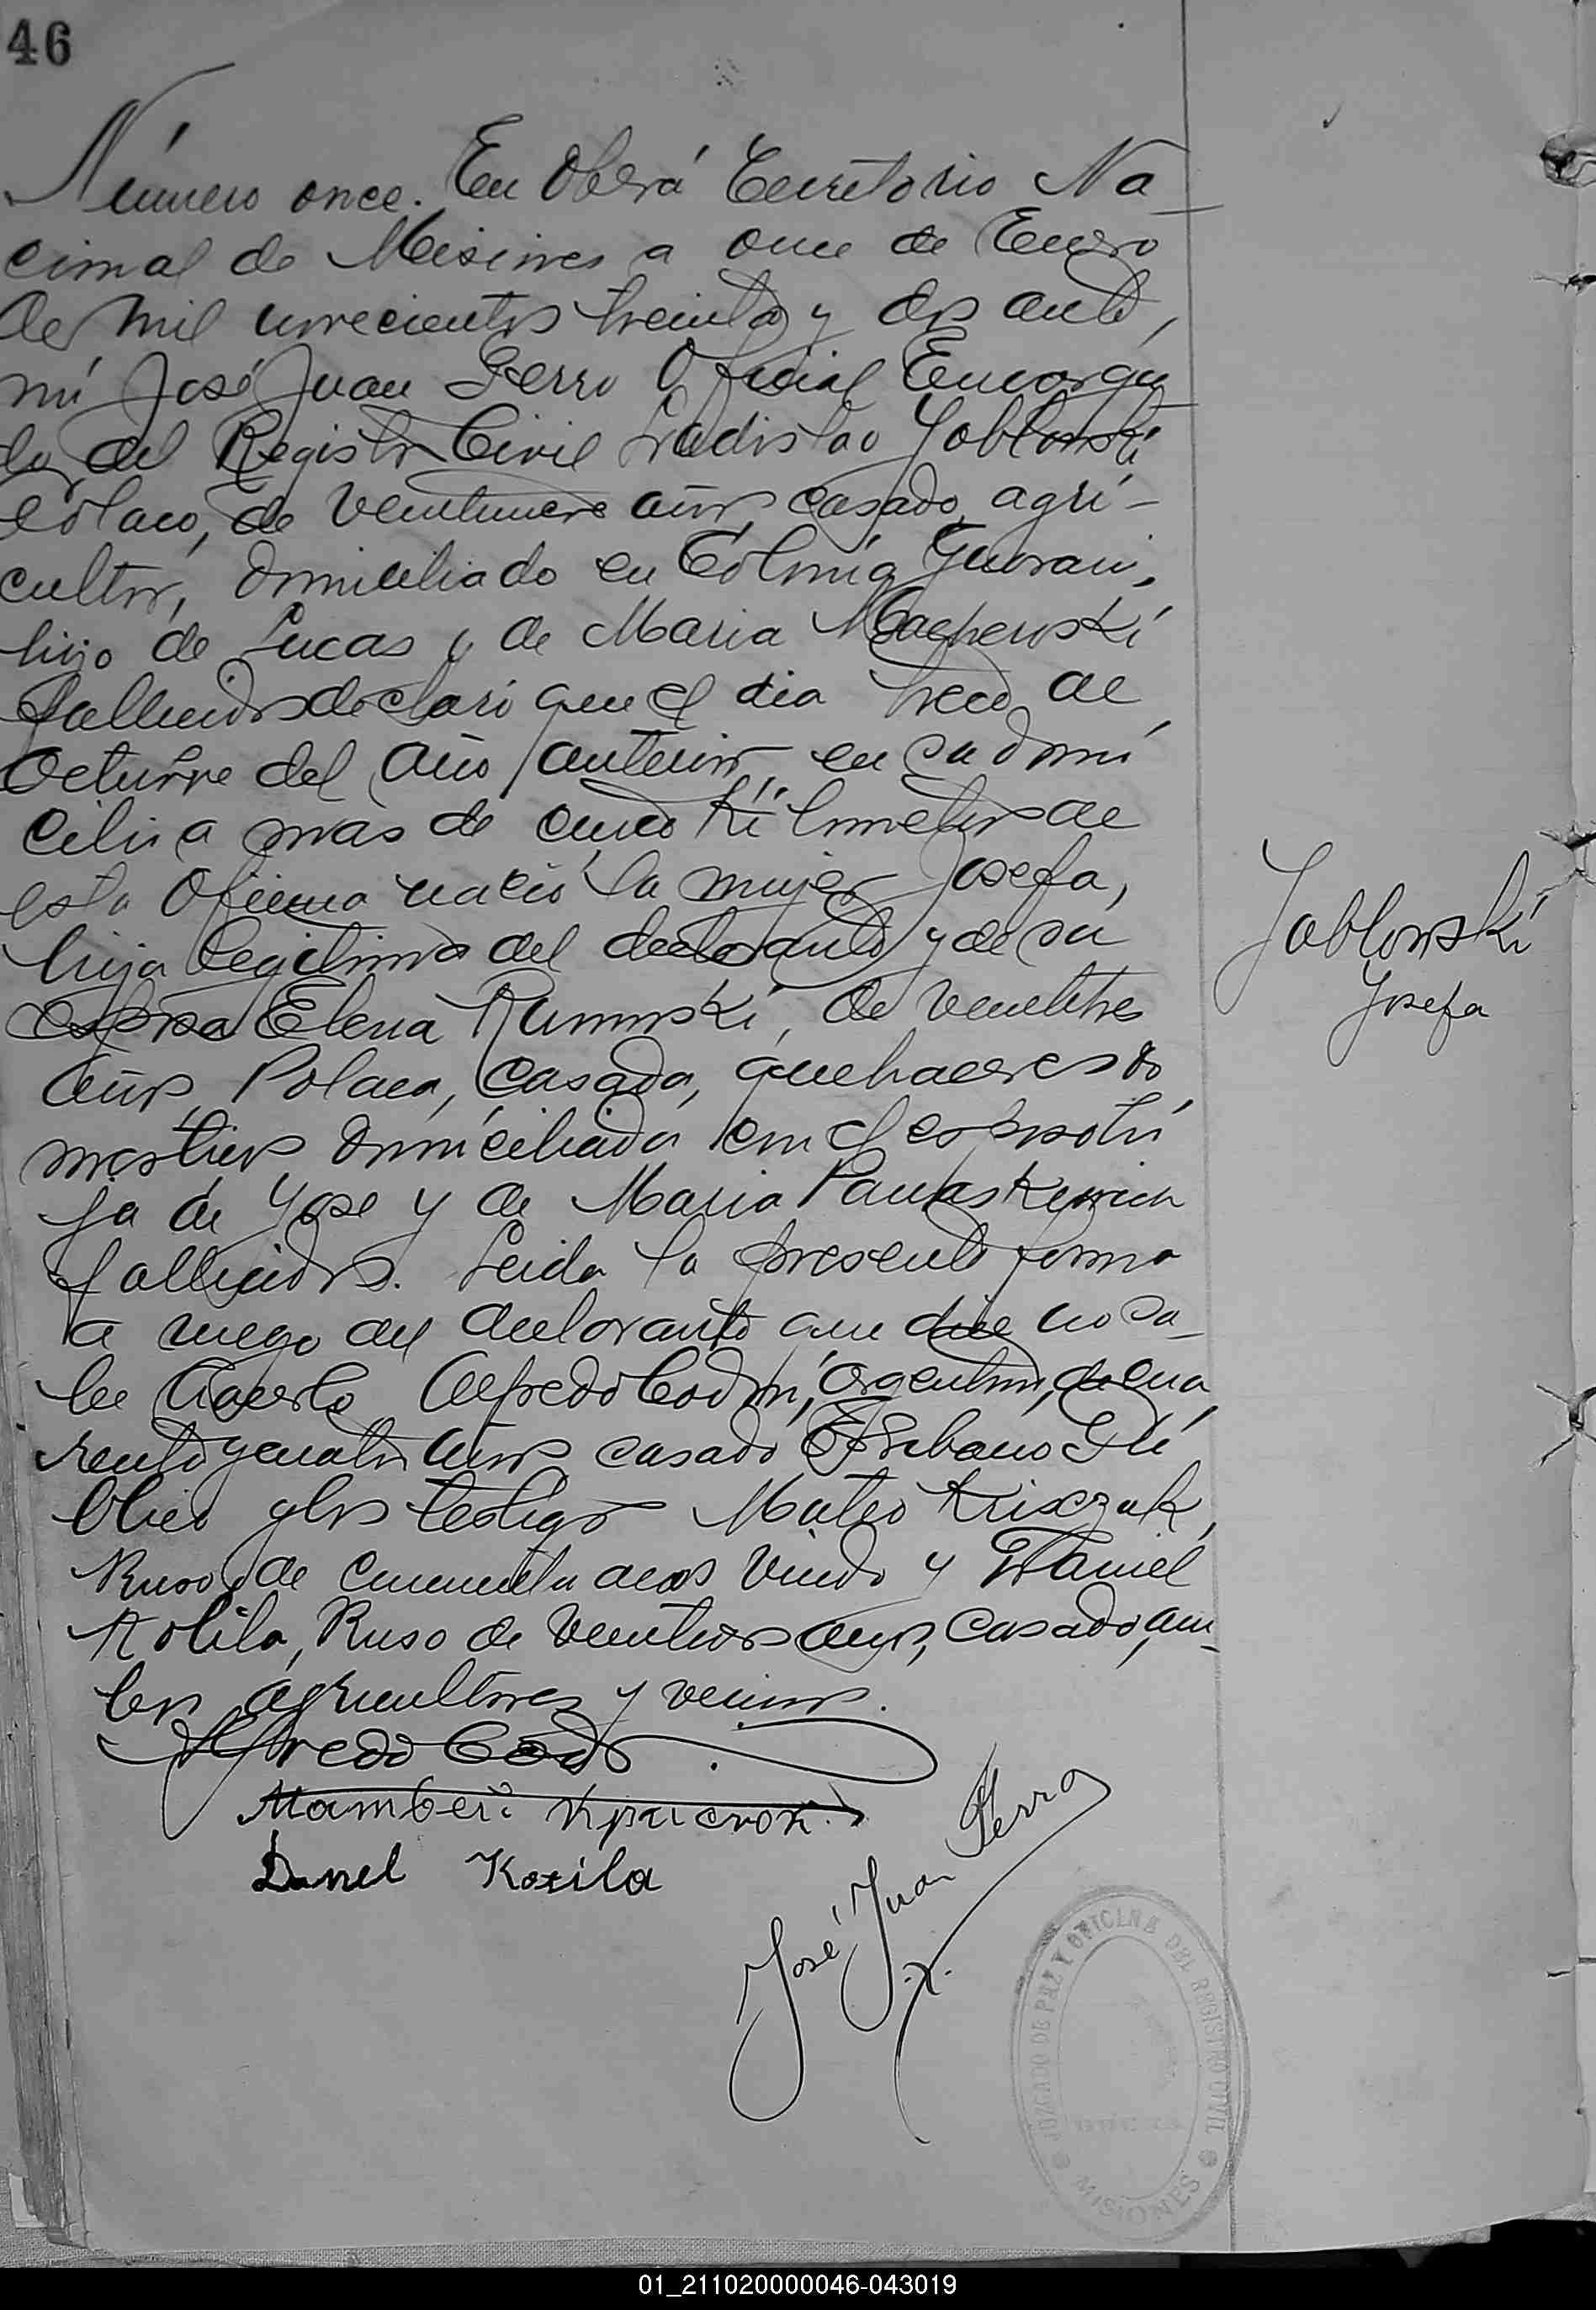 46
Número once. En Oberá Territorio Na-
cional de Misiones a once de Enero
de mil novecientos treinta y dos ante,
mi José Juan Serro Oficial Encarga-
do del Registro Civil Ladislao Jablonski
Polaco, de veintinueve años, casado, agri-
cultor, domiciliado en Colonia Guarani,
hijo de Lucas y de Maria
fallecidos declaró que el dia trece de
Octubre del año anterior, en su domi
cilio a mas de cinco kilometros de
esta Oficina nació la mujer Josefa,
hija legitima del declarante y de su
esposa Elena, de veintitres
años, Polaca, casada, quehaceres do
mesticos domiciliada con el esposo hi
ja de Jose y de Maria
fallecidos. Leida la presente firma
a ruego del declarante que dice no sa-
be hacerlo Alfredo, argentino, de cua
renta y cuatro años casado Escribano Pú
blico y los testigos Mateo Krisczuk,
Ruso de cincuenta años viudo y Daniel
Kolila, Ruso de veintidos años, casado, am-
bos agricultores y vecinos.
Alfredo
Danel Kozila
José Juan Serro
Jablonski
Josefa
JUZGADO DE PAZ Y OFICINA DEL REGISTRO CIVIL
MISIONES
01_211020000046-043019